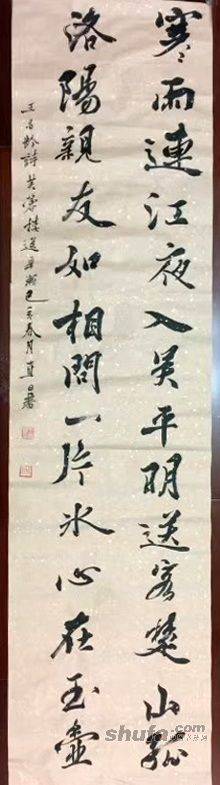 寒雨連江夜入吴平明送客楚山孤
洛陽親友如相問一片冰心在玉壺
王昌齡詩芙蓉樓送辛漸己亥春月直
shufa.com